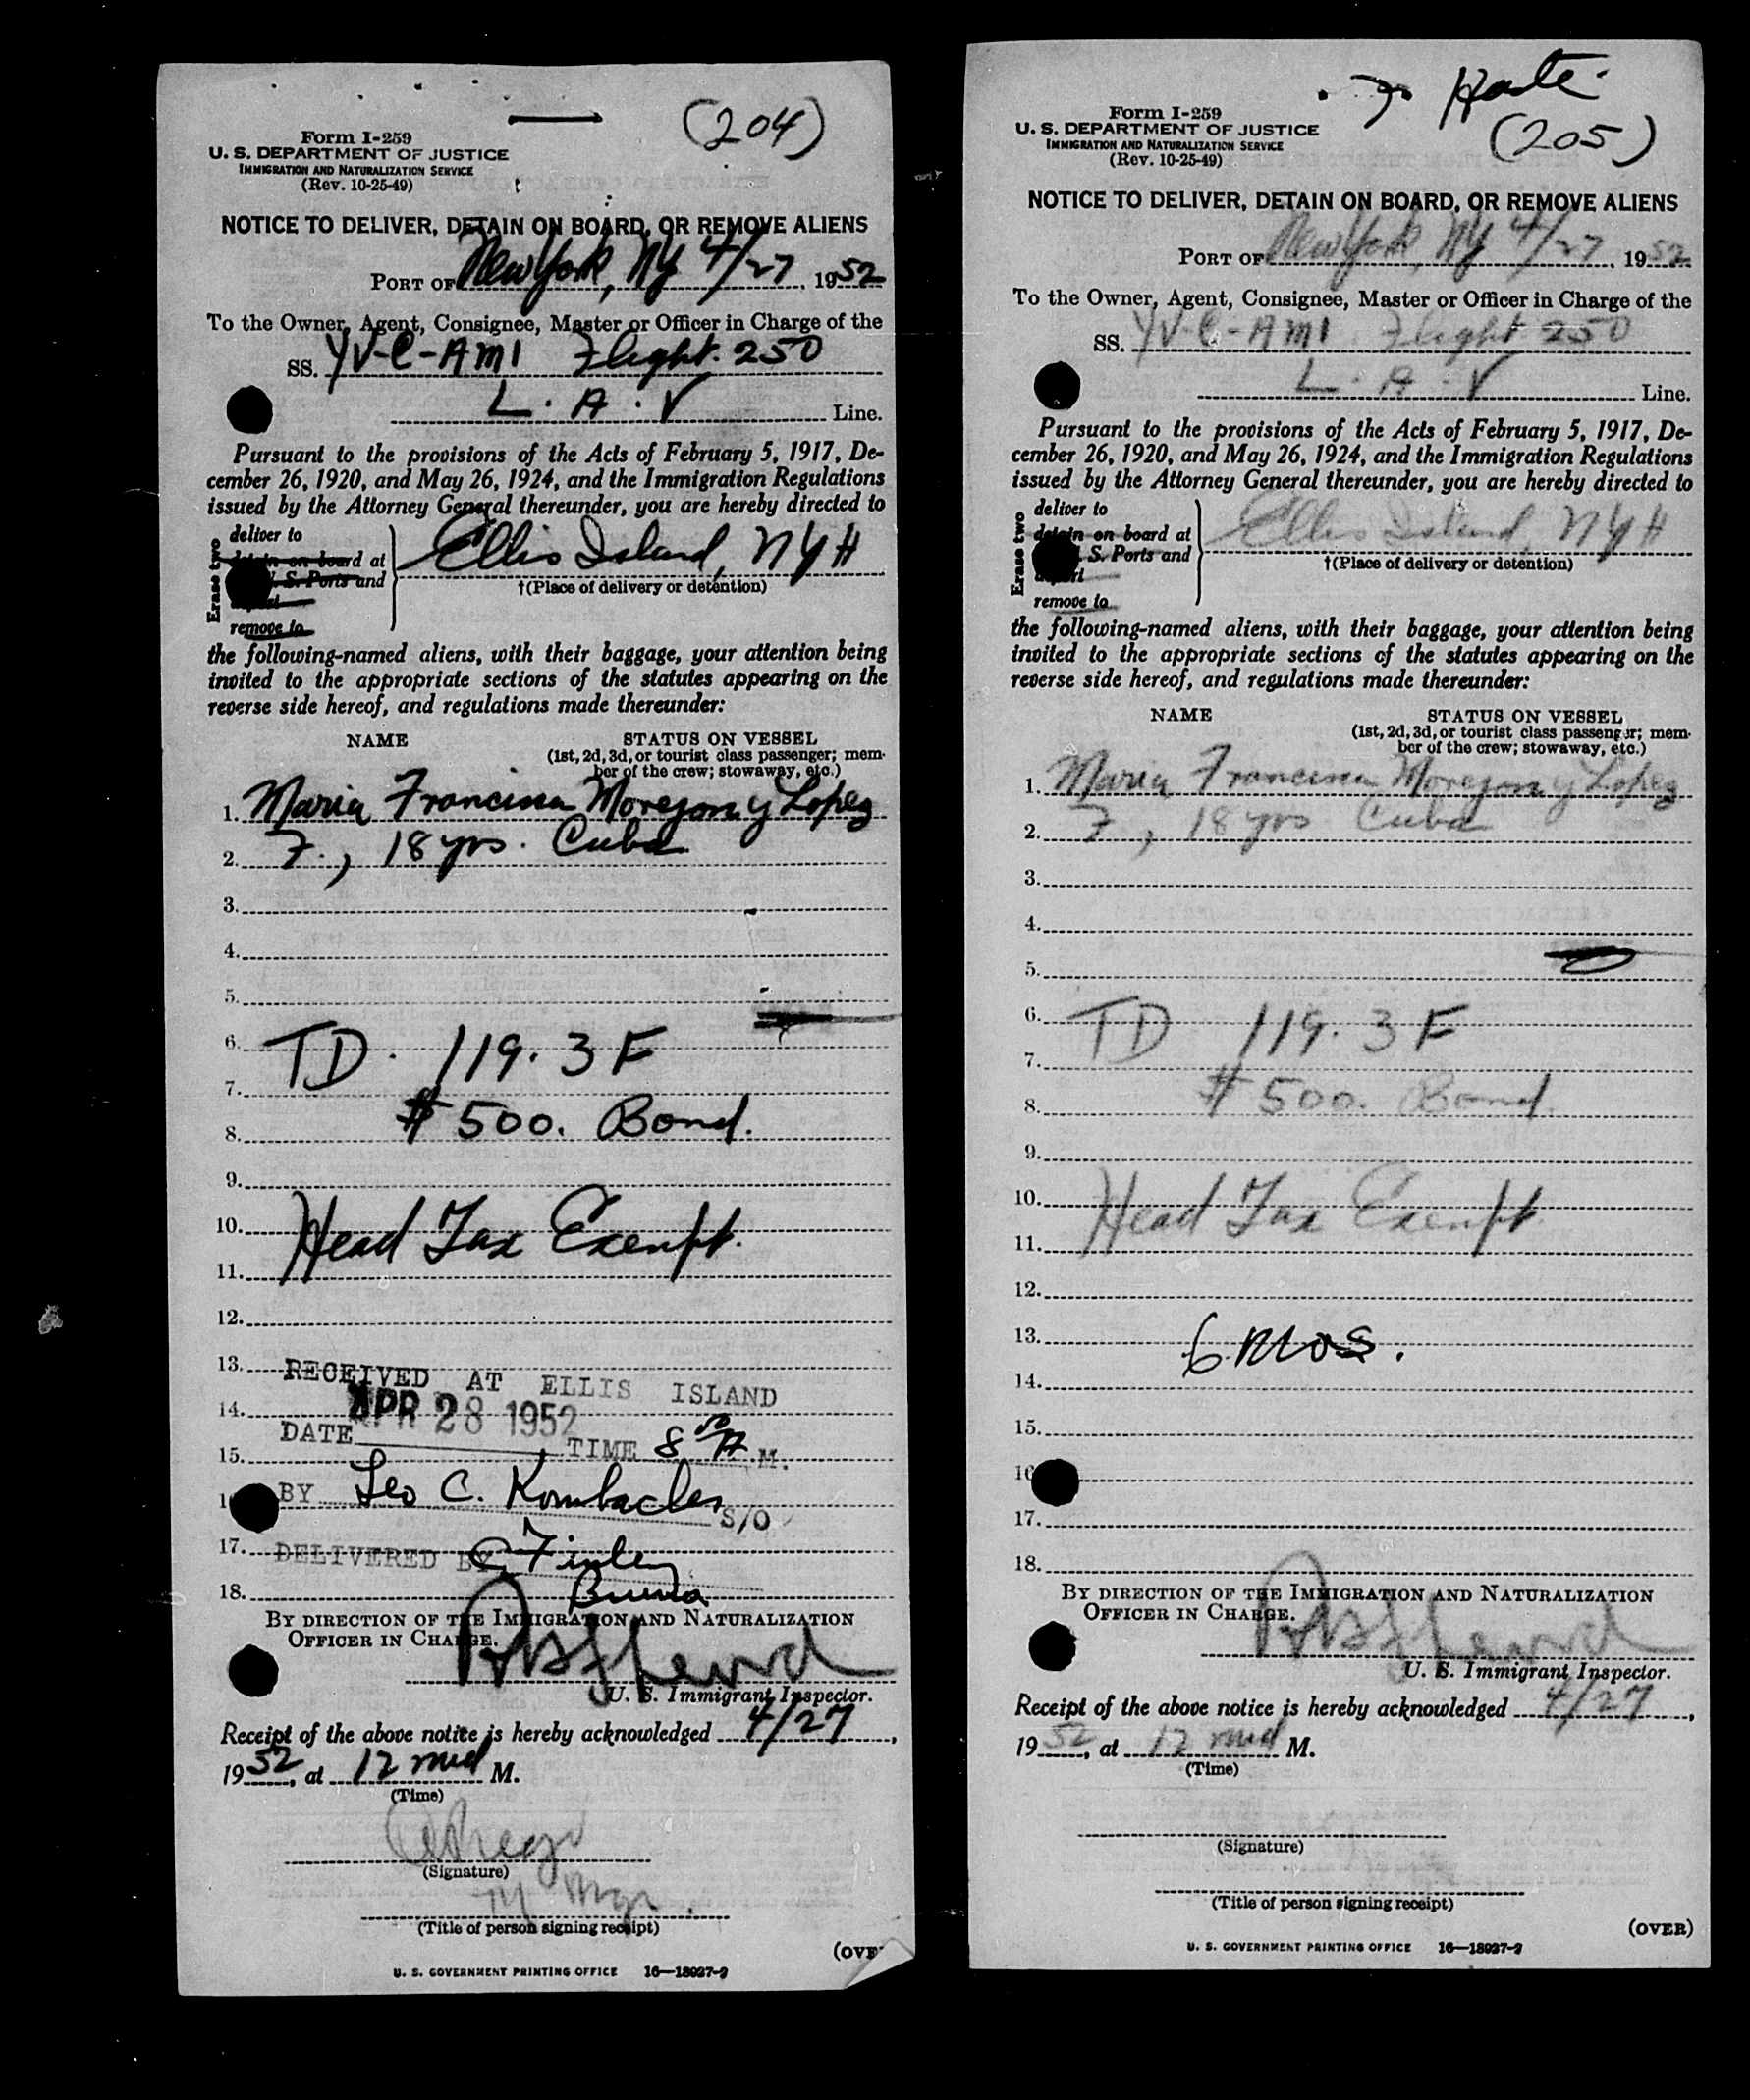 (204)
Form I-259
U. S. DEPARTMENT OF JUSTICE
IMMIGRATION AND NATURALIZATION SERVICE
(Rev. 10-25-49)
NOTICE TO DELIVER, DETAIN ON BOARD, OR REMOVE ALIENS
PORT OF New York, NY 4/27, 1952
To the Owner, Agent, Consignee, Master or Officer in Charge of the
SS. YV-C-AMI Flight 250
L.A.V Line.
Pursuant to the provisions of the Acts of February 5, 1917, De-
cember 26, 1920, and May 26, 1924, and the Immigration Regulations
issued by the Attorney General thereunder, you are hereby directed to
Erase two
deliver to
detain on board at
S. Ports and
remove to
Ellis Island, NYH
†(Place of delivery or detention)
the following-named aliens, with their baggage, your attention being
invited to the appropriate sections of the statutes appearing on the
reverse side hereof, and regulations made thereunder:
NAME STATUS ON VESSEL
(1st, 2d, 3d, or tourist class passenger; mem-
ber of the crew; stowaway, etc.)
1. Maria Francisca Morejon y Lopez
2. F., 18 yrs. Cuba
3.
4.
5.
6. TD. 119.3 F
7.
8. $500. Bond.
9.
10. Head Tax Exempt.
11.
12.
13. RECEIVED AT ELLIS ISLAND
14. APR 28 1952
DATE TIME 8 50 A.M.
15.
BY Leo C. S/O
17. DELIVERED BY C Finley
18.
BY DIRECTION OF THE IMMIGRATION AND NATURALIZATION
OFFICER IN CHARGE.
U. S. Immigrant Inspector.
Receipt of the above notice is hereby acknowledged 4/27,
1952, at 12 mid M.
(Time)
(Signature)
Mgr.
(Title of person signing receipt)
(OVE
U. S. GOVERNMENT PRINTING OFFICE 16—18027-2
(205)
Form I-259
U. S. DEPARTMENT OF JUSTICE
IMMIGRATION AND NATURALIZATION SERVICE
(Rev. 10-25-49)
NOTICE TO DELIVER, DETAIN ON BOARD, OR REMOVE ALIENS
PORT OF New York, NY 4/27, 1952
To the Owner, Agent, Consignee, Master or Officer in Charge of the
SS. YV-C-AMI Flight 250
L.A.V Line.
Pursuant to the provisions of the Acts of February 5, 1917, De-
cember 26, 1920, and May 26, 1924, and the Immigration Regulations
issued by the Attorney General thereunder, you are hereby directed to
Erase two
deliver to
detain on board at
S. Ports and
remove to
Ellis Island, NYH
†(Place of delivery or detention)
the following-named aliens, with their baggage, your attention being
invited to the appropriate sections of the statutes appearing on the
reverse side hereof, and regulations made thereunder:
NAME STATUS ON VESSEL
(1st, 2d, 3d, or tourist class passenger; mem-
ber of the crew; stowaway, etc.)
1. Maria Francisca Morejon y Lopez
2. F., 18 yrs Cuba
3.
4.
5.
6. TD 119.3 F
7.
8. $500. Bond.
9.
10. Head Tax Exempt
11.
12.
13. 6 MOS.
14.
15.
16
17.
18.
BY DIRECTION OF THE IMMIGRATION AND NATURALIZATION
OFFICER IN CHARGE.
U. S. Immigrant Inspector.
Receipt of the above notice is hereby acknowledged 4/27,
1952, at 12 mid M.
(Time)
(Signature)
(Title of person signing receipt)
(OVER)
U. S. GOVERNMENT PRINTING OFFICE 16—18027-2